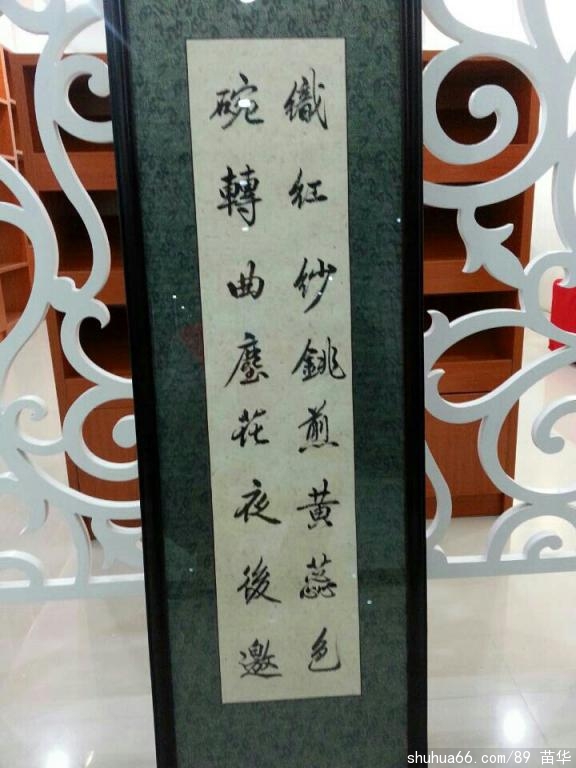 織红纱銚煎黄蕊色
碗轉曲塵花夜後邀
shuhua66.com/89 苗华